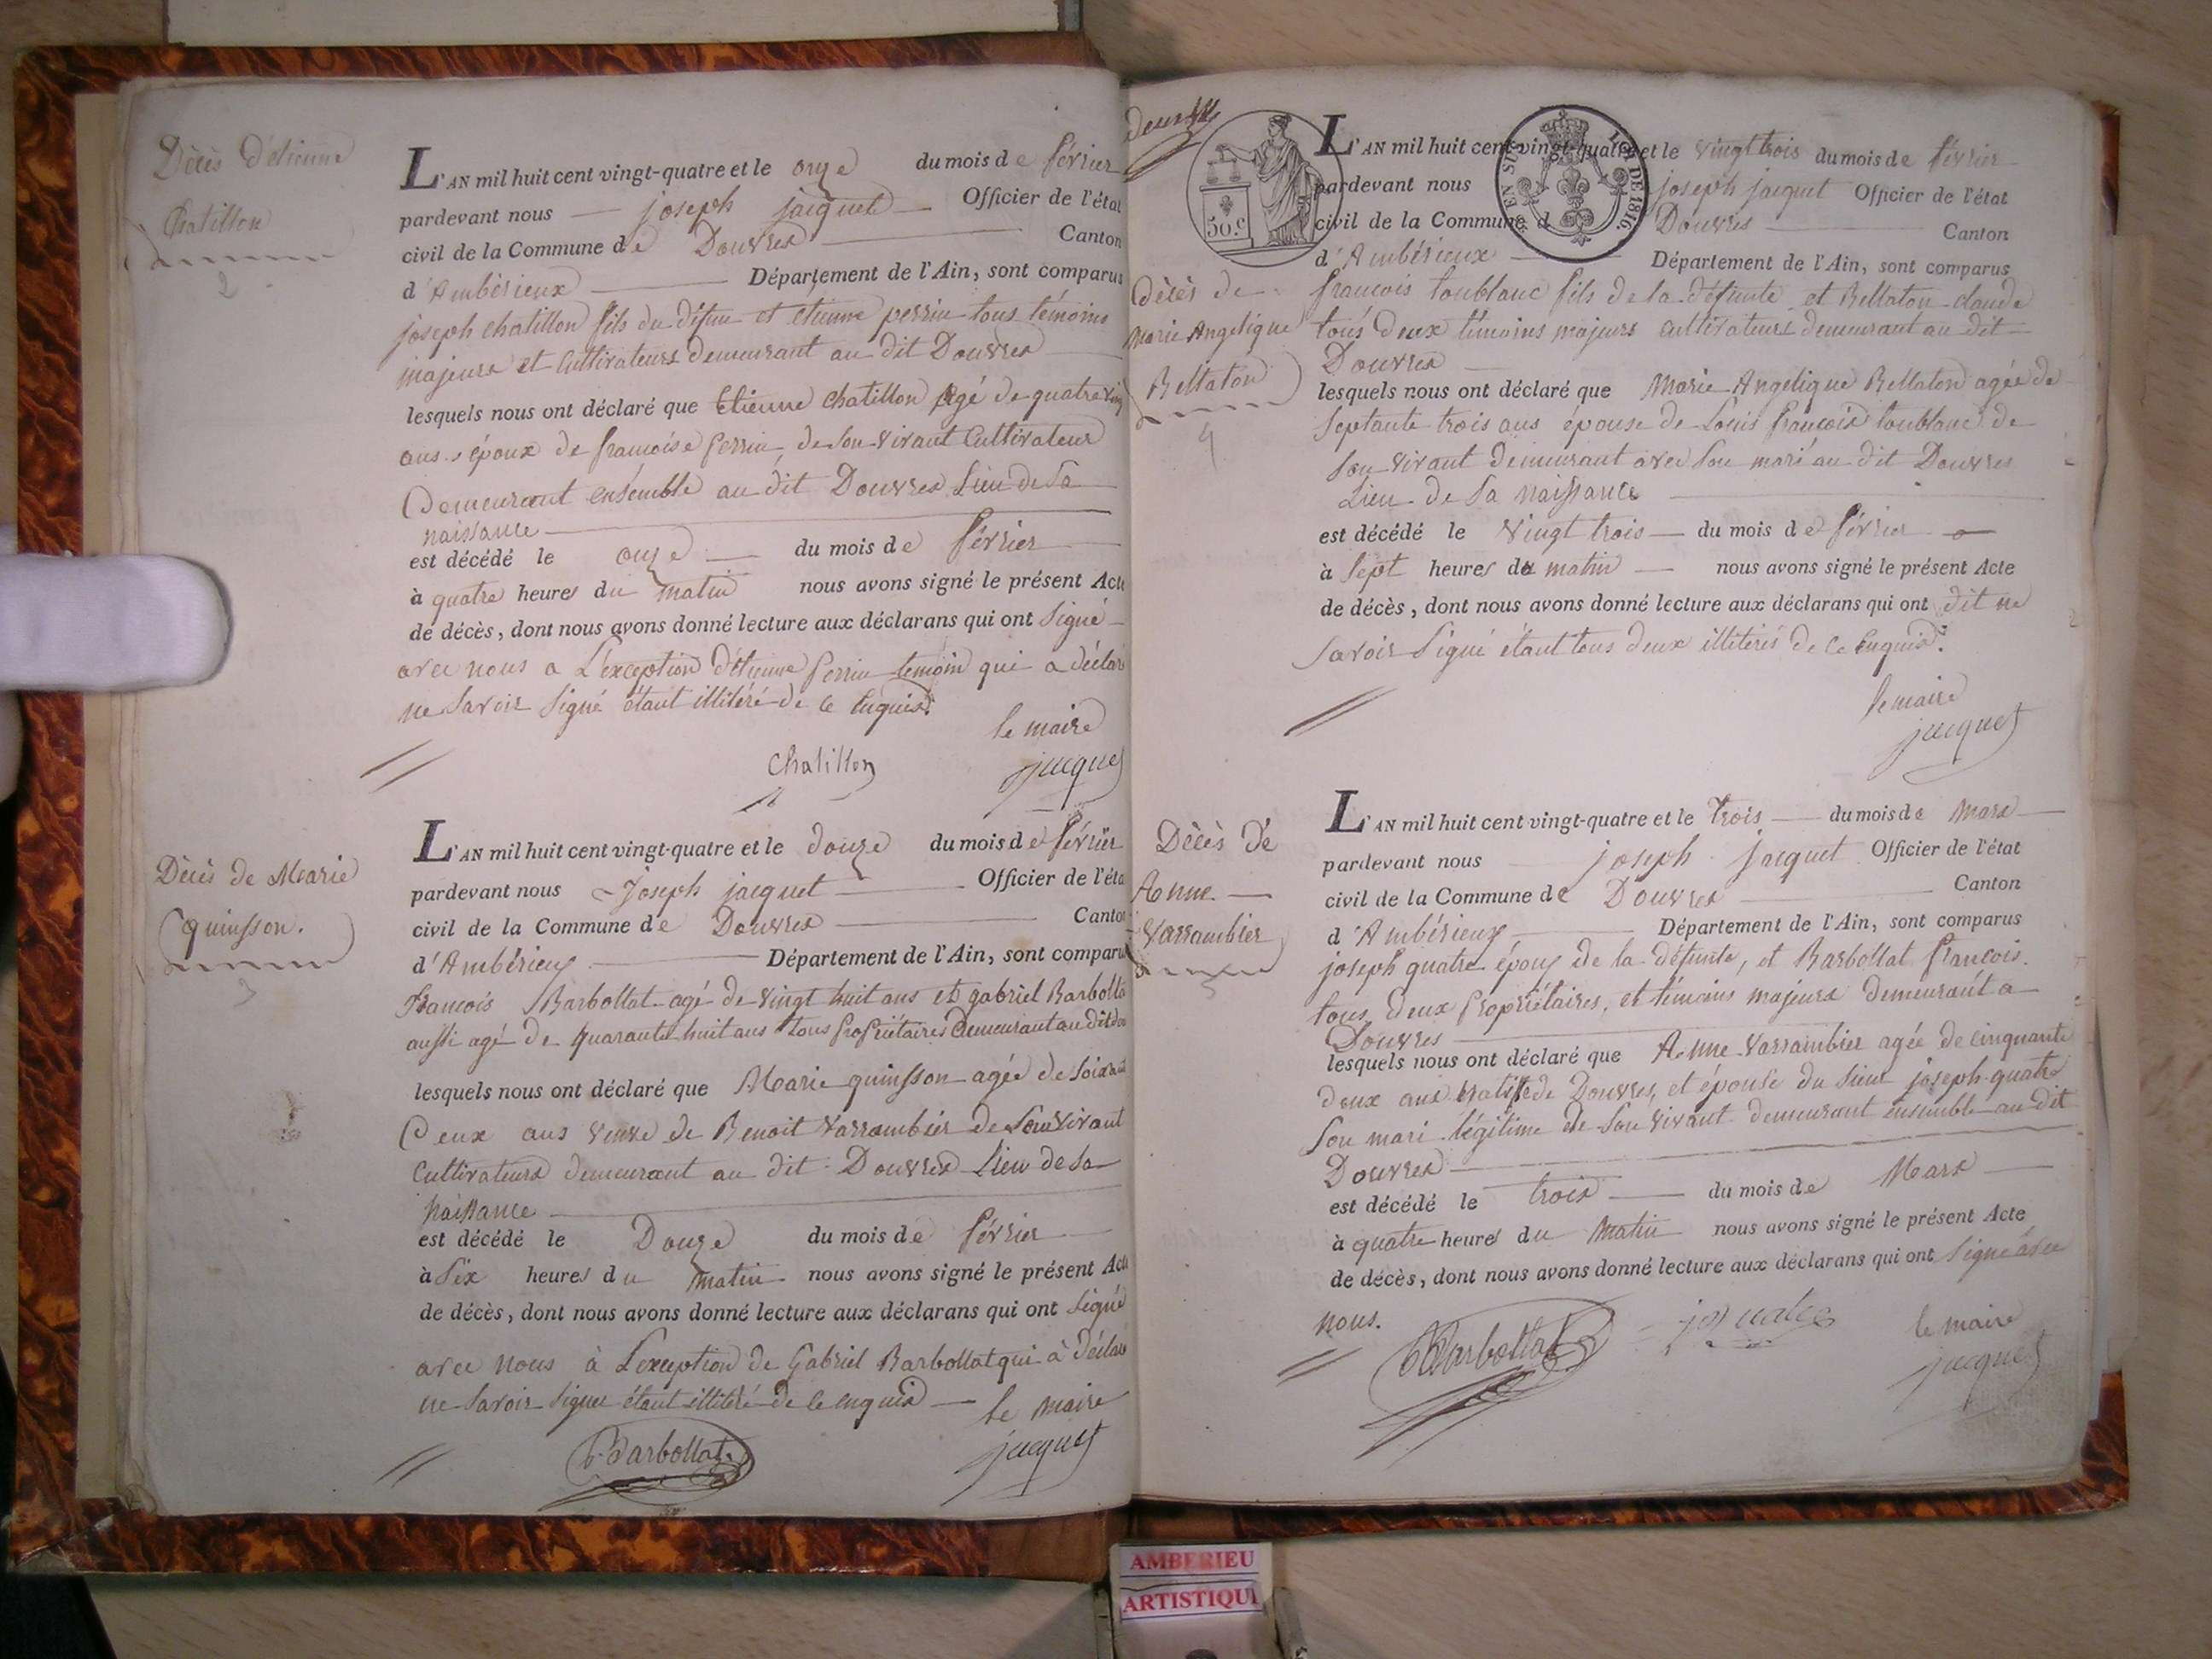 Décès d'étienne
Chatillon
2
L'AN mil huit cent vingt-quatre et le onze du mois de février
pardevant nous joseph jacquet Officier de l'état
civil de la Commune de Douvres Canton
d'Ambérieux Département de l'Ain, sont comparus
joseph chatillon fils du défun et étienne perrin tous témoins
majeurs et cultivateurs demeurant au dit Douvres
lesquels nous ont déclaré que Etienne chatillon agé de quatre ving
ans époux de françoise perrin de son vivant Cultivateur
Demeurant ensemble au dit Douvres Lieu de Sa
naissance
est décédé le onze du mois de février
à quatre heures du matin nous avons signé le présent Acte
de décès, dont nous avons donné lecture aux déclarans qui ont Signé
avec nous a L'exception d'étienne perrin temoin qui a déclaré
ne Savoir Signé étant illitéré de ce Enquis.
le maire
Chatillon jacquet
Décès de Marie
quinsson.
3
L'AN mil huit cent vingt-quatre et le douze du mois de février
pardevant nous Joseph jacquet Officier de l'éta
civil de la Commune de Douvres Canton
d'Ambérieux Département de l'Ain, sont comparu
François Barbollat agé de vingt huit ans et gabriel Barbolla
aussi agé de quarante huit ans tous propriétaires demeurant au dit dou
lesquels nous ont déclaré que Marie quinsson agée de Soixante
Deux ans veuve de Benoit Varrambier de Son vivant
Cultivateurs demeurant au dit Douvres Lieu de Sa
naissance
est décédé le Douze du mois de février
à Six heures du matin nous avons signé le présent Acte
de décès, dont nous avons donné lecture aux déclarans qui ont Signé
avec nous à L'exception de Gabriel Barbollat qui à déclaré
ne Savoir Signer étant illitéré de ce enquis le maire
Barbollat jacquet
deux
50.c
EN SUS
LOI DE 1816.
Décès de
Marie Angelique
Bellaton
4
L'AN mil huit cent vingt-quatre et le vingt trois du mois de février
pardevant nous joseph jacquet Officier de l'état
civil de la Commune d Douvres Canton
d'Ambérieux Département de l'Ain, sont comparus
françois loublanc fils de la défunte et Bellaton claude
tous deux témoins majeurs cultivateurs demeurant au dit
Douvres
lesquels nous ont déclaré que Marie Angelique Bellaton agée de
Septante trois ans épouse de Louis françois loublanc de
Son vivant demeurant avec Son mari au dit Douvres
Lieu de Sa naissance
est décédé le vingt trois du mois de février
à Sept heures du matin nous avons signé le présent Acte
de décès, dont nous avons donné lecture aux déclarans qui ont dit ne
Savoir Signé étant tous deux illitérés de ce Enquis.
le maire
jacquet
Décès de
Anne
Varrambier
5
L'AN mil huit cent vingt-quatre et le trois du mois de Mars
pardevant nous joseph jacquet Officier de l'état
civil de la Commune de Douvres Canton
d'Ambérieux Département de l'Ain, sont comparus
joseph quatre époux de la défunte, et Barbollat françois.
tous deux propriétaires, et témoins majeurs demeurant a
Douvres
lesquels nous ont déclaré que Anne Varrambier agée de cinquante
deux ans native de Douvres, et épouse du Sieur joseph quatre
Son mari légitime de Son vivant demeurant ensemble au dit
Douvres
est décédé le trois du mois de Mars
à quatre heures du Matin nous avons signé le présent Acte
de décès, dont nous avons donné lecture aux déclarans qui ont Signé avec
nous.
Barbollat le maire
jacquet
AMBERIEU
ARTISTIQU